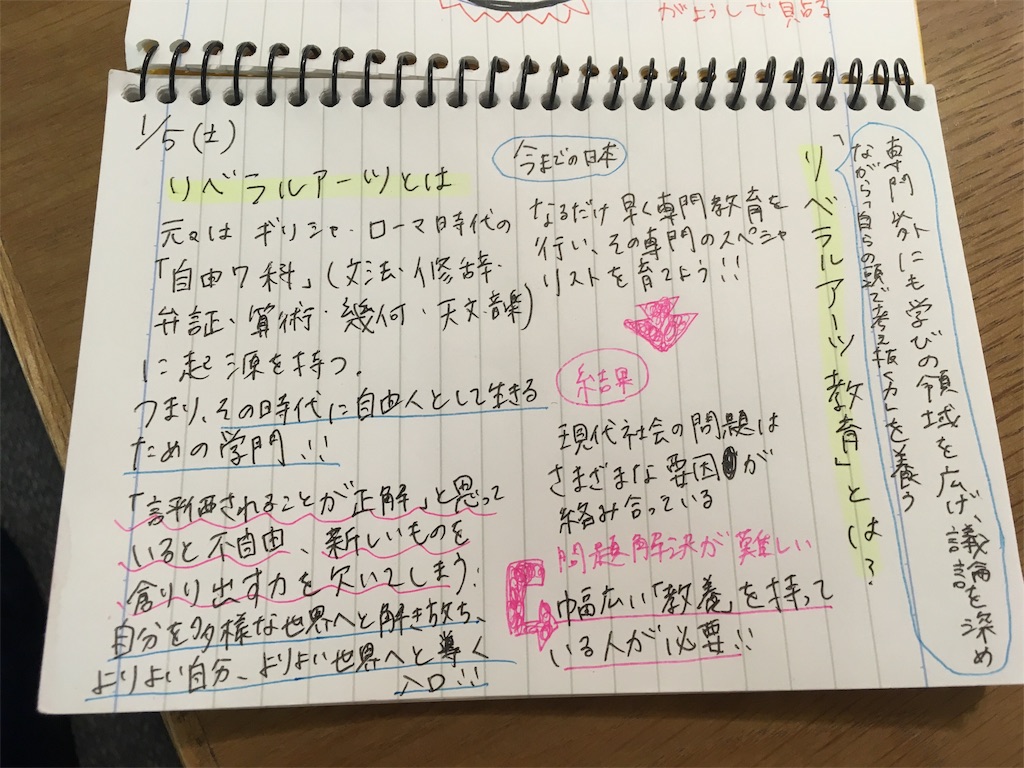 がようしで見占る
1/5(土)
リベラルアーツとは
元々は ギリシャ・ローマ時代の
「自由7科」(文法・修辞・
弁証・算術・幾何・天文・音楽)
に起源を持つ.
つまり、その時代に自由人として生きる
ための学門!!
「評価されることが正解」と思って
いると不自由、新しいものを
創り出す力を欠いてしまう.
自分を多様な世界へと解き放ち、
よりよい自分、よりよい世界へと導く
入口!!
今までの日本
なるだけ早く専門教育を
行い、その専門のスペシャ
リストを育てよう!!
結果
現代社会の問題は
さまざまな要因が
絡み合っている
問題解決が難しい
幅広い「教養」を持って
いる人が必要!!
「リベラルアーツ教育」とは?
専門外にも学びの領域を広げ、議論を深め
ながら「自らの頭で考え抜く力」を養う